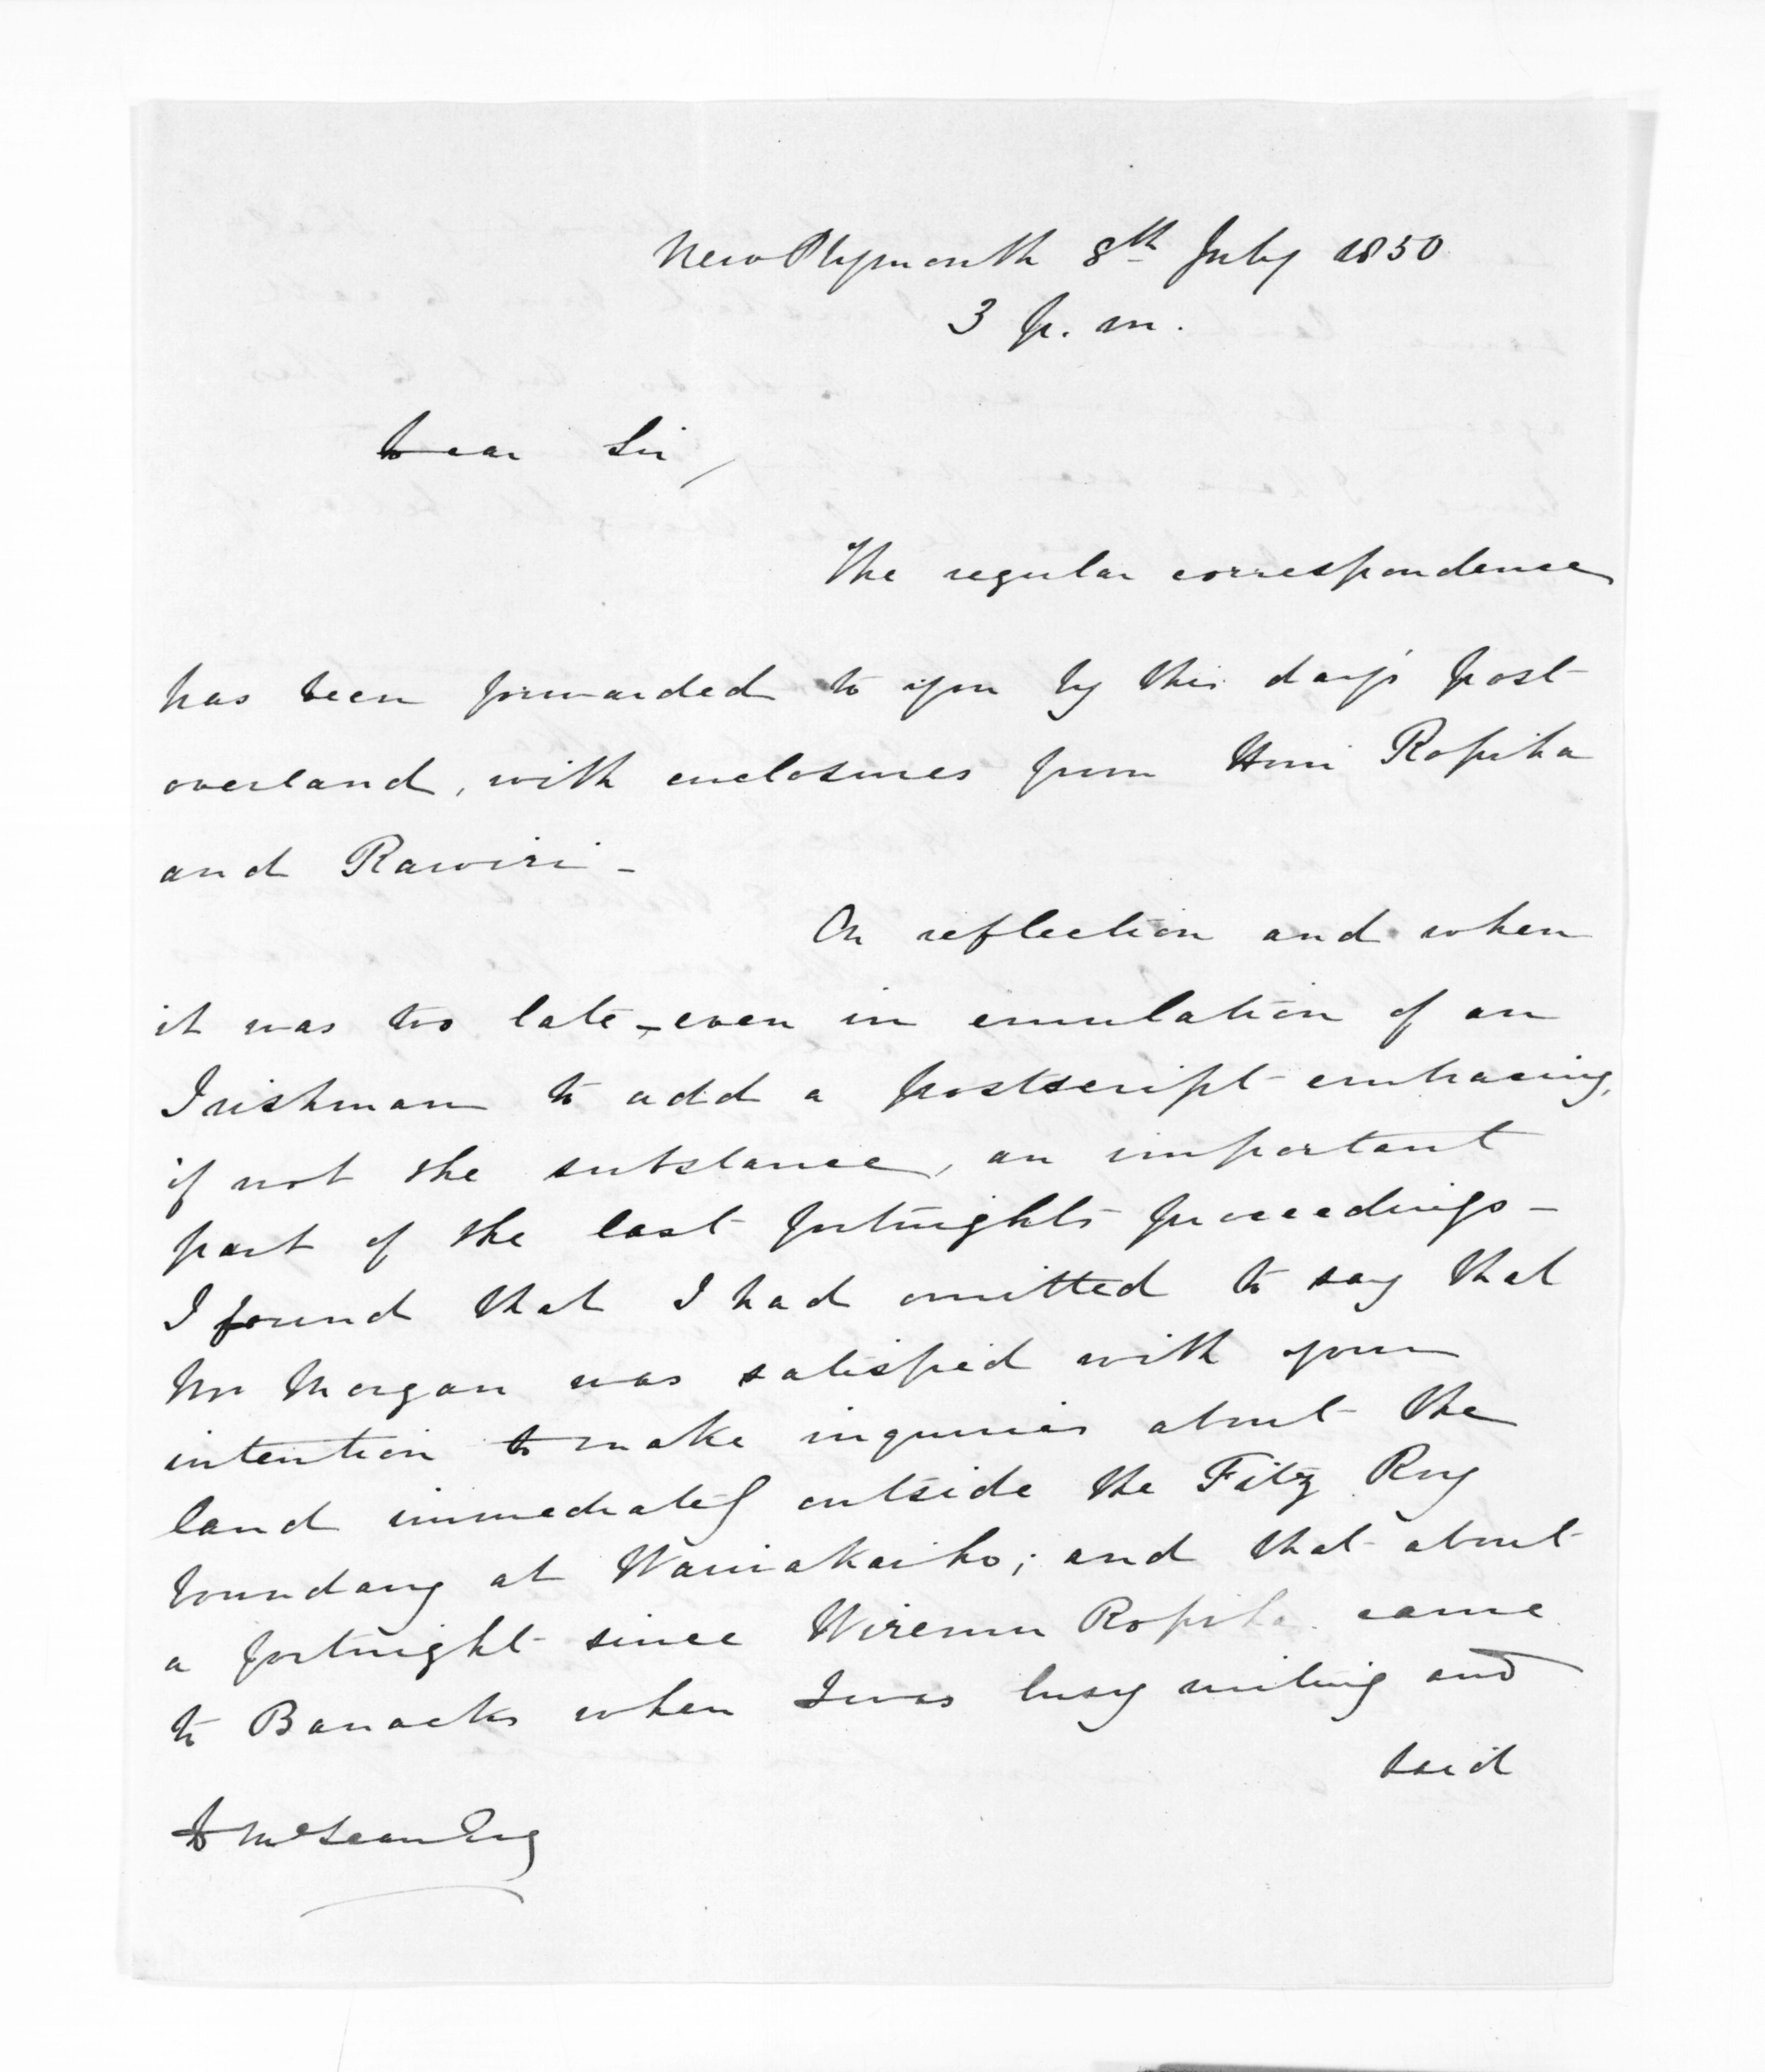 New Plymouth 8th July 1850
3 p. m.
Dear Sir,
The regular correspondence
has been forwarded to you by this day's post
overland, with enclosures from Honi Ropiha
and Rawiri -
On reflection and when
it was too late, even in emulation of an
Irishman to add a postscript embracing,
if not the substance, an important
part of the last fortnights proceedings -
I found that I had omitted to say that
Mr Morgan was satisfied with your
intention to make inquiries about the
land immediately outside the Fitz Roy
boundary at Waiwakaiho; and that about
a fortnight since Wiremu Ropiha came
to Barracks when I was busy writing and
said
D McLean Esq